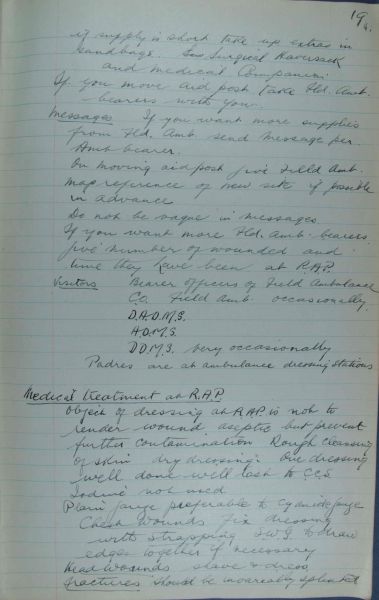 19
if supply is short take up extras in
sandbags. See Surgical Haversack
and Medical Companion
If you move aid post, take Fld. Amb.
bearers with you.
Messages If you want more supplies
from Fld. Amb. send message per.
Amb. bearer.
On moving aid post give Field Amb.
map reference of new site if possible
in advance
Do not be vague in messages.
If you want more Fld. Amb. bearers
give number of wounded and
time they have been at R.A.P.
Visitors Bearer Officers of Field Ambulance
C.O. Field Amb. occasionally.
D.A.D.M.S.
A.D.M.S.
D.D.M.S. very occasionally
Padres are at ambulance dressing stations
Medical treatment at R.A.P.
Object of dressing at R.A.P. is not to
render wound aseptic but prevent
further contamination Rough cleansing
of skin dry dressing. One dressing
well done will last to C.C.S
Iodine not used
Plain gauze preferable to cyanide gauze
Chest wounds fix dressing
with strapping S.W.G to draw
edges together if necessary
Head wounds shave & dress
Fractures should be invariably splinted